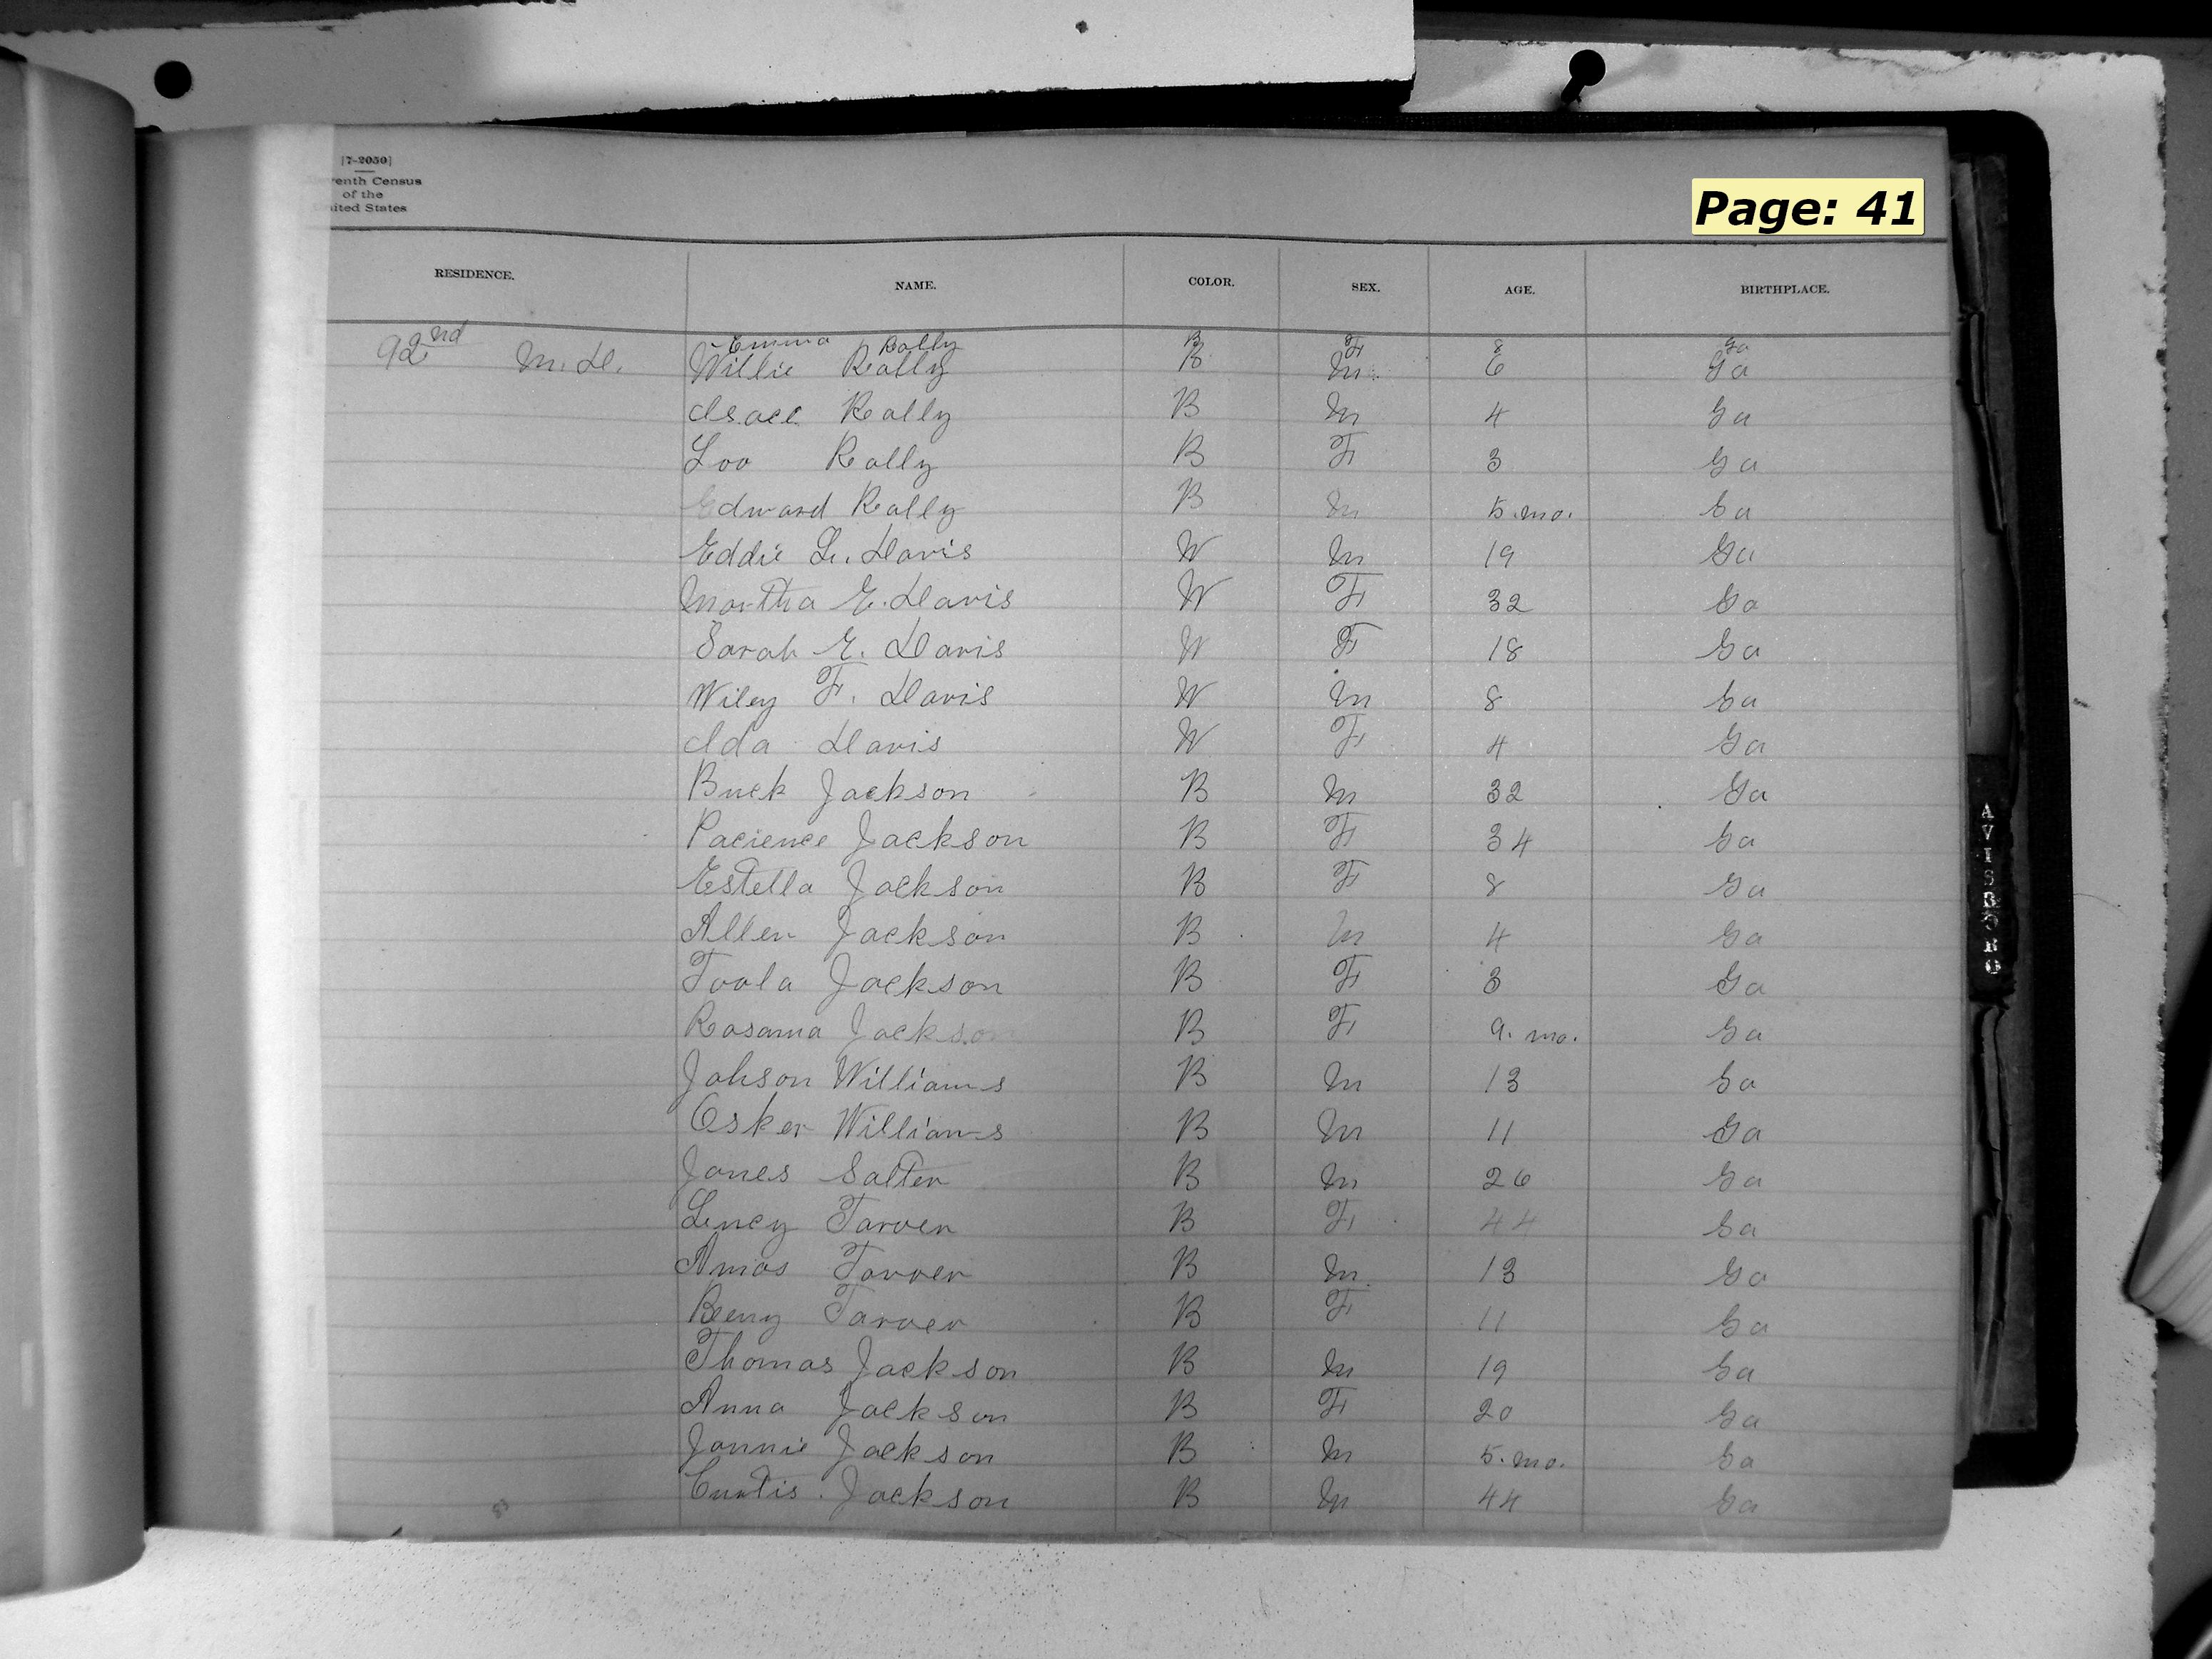 [7-2050]
venth Census
of the
nited States
Page: 41
RESIDENCE. NAME. COLOR. SEX. AGE. BIRTHPLACE.
Emma Rally B F 8 Ga
92nd M. D. Willie Rally B M. 6 Ga
Isaac Rally B M 4 Ga
Loo Rally B F 3 Ga
Edward Rally B M 5. mo. Ga
Eddie L. Davis W M 19 Ga
Martha E. Davis W F 32 Ga
Sarah E. Davis W F 18 Ga
Wiley F. Davis W M 8 Ga
Ida Davis W F 4 Ga
Buck Jackson B M 32 Ga
Pacience Jackson B F 34 Ga
Estella Jackson B F 8 Ga
Allen Jackson B M 4 Ga
Toola Jackson B F 3 Ga
Rosanna Jackson B F 9. mo. Ga
Johson Williams B M 13 Ga
Osker Williams B M 11 Ga
Jones Salter B M 26 Ga
Lucy Tarver B F 44 Ga
Amos Tarver B M 13 Ga
Tarver B F 11 Ga
Thomas Jackson B M 19 Ga
Anna Jackson B F 20 Ga
Jonnie Jackson B M 5. mo. Ga
Curtis Jackson B M 44 Ga
83
AVISBORO